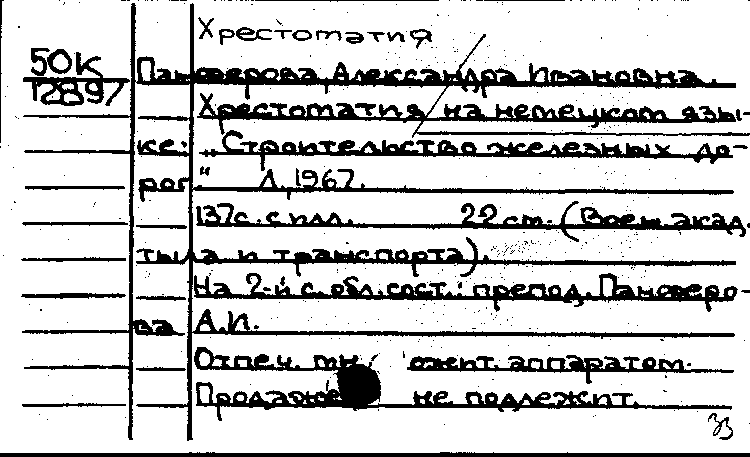 Хрестоматия
50К
12897
Панферова, Александра Ивановна.
Хрестоматия на немецком язы-
ке: „Строительство железных до-
рог." Л., 1967.
137с. с илл. 22 см. (Воен. акад.
тыла и транспорта).
На 2-й с. обл. сост.: препод. Панферо-
ва А.И.
Отпеч. множит. аппаратом.
Продаже не подлежит.